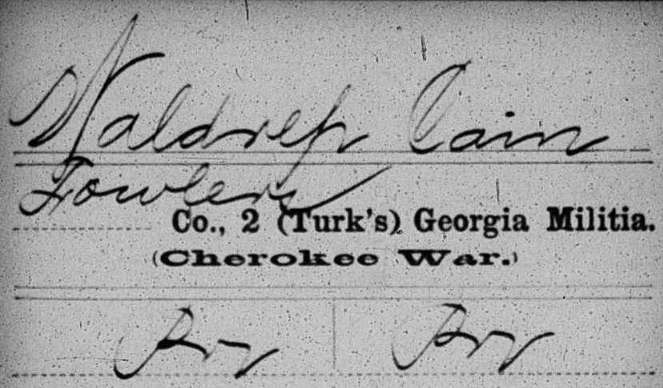 Waldrep Cain
Fowlers
Co., 2 (Turk's) Georgia Militia.
(Cherokee War.)
Pvt Pvt